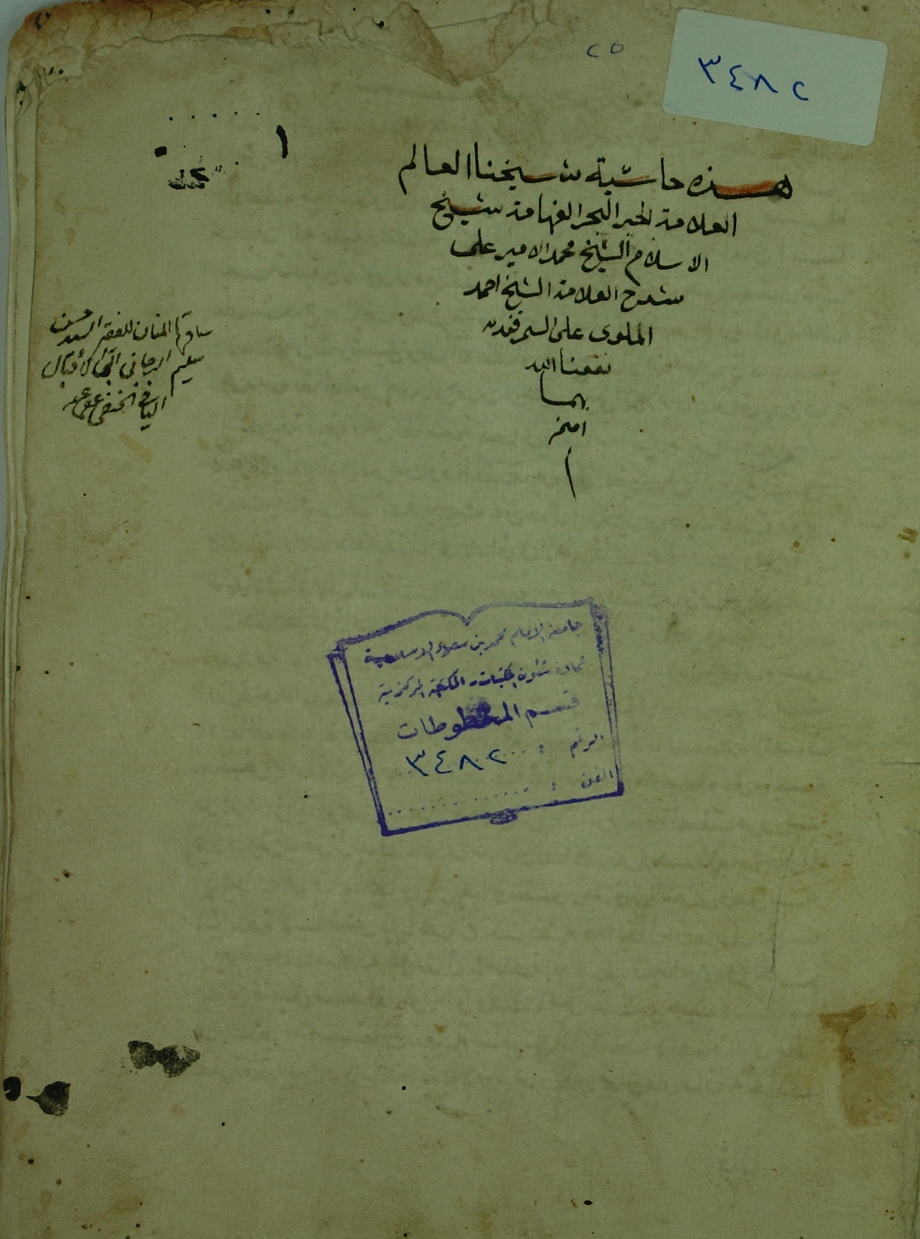 ٢٥
٣٤٨٢
١
هذه حاشية شيخنا العالم
العلامة الحبر البحر الفهامة شيخ
الاسلام الشيخ محمد الامير على
شرح العلامة الشيخ احمد
الملوى على السمرقنديه
نفعنا الله
بهما
امين
ساقها المنان للفقير السيد حسن
سليم الدجانى
اليافي الحنفي عفى عنه
جامعة الامام محمد بن سعود الاسلامية
عمادة شئون المكتبات - المكتبة المركزية
قسم المخطوطات
الرقم : ٣٤٨٢
الفن :